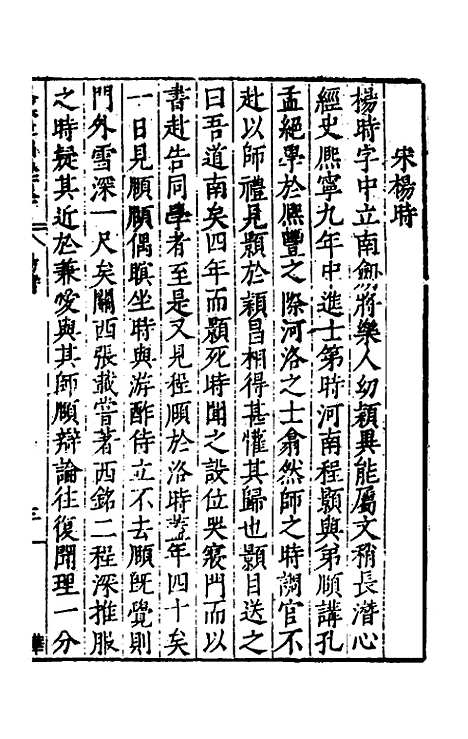 宋楊時
楊時字中立南劔將樂人幼穎異能屬文稍長潛心
經史熈寧九年中進士第時河南程顥與弟頤講孔
孟絕學於熈豐之際河洛之士翕然師之時調官不
赴以師禮見顥於潁昌相得甚懽其歸也顥目送之
曰吾道南矣四年而顥死時聞之設位哭寢門而以
書赴告同學者至是又見程頤於洛時葢年四十矣
一日見頤頤偶瞑坐時與游酢侍立不去頤旣覺則
門外雪深一尺矣關西張載嘗著西銘二程深推服
之時疑其近於兼愛與其師頤辯論往復聞理一分